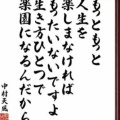 もっともっと
人生を
楽しまなければ
もったいないですよ
生き方ひとつで
楽園になるんだから
中村天風